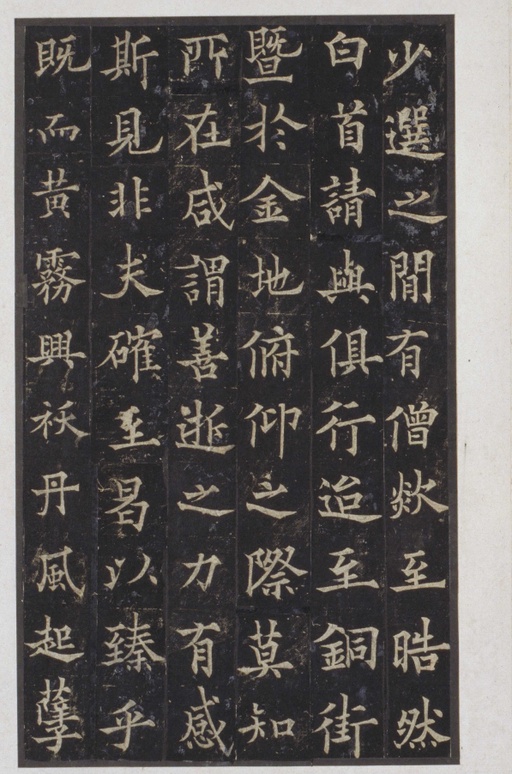 少選之閒有僧欻至晧然
白首請與俱行迨至銅街
曁於金地俯仰之際莫知
所在咸謂善逝之力有感
斯見非夫確至曷以臻乎
既而黃霧興祅丹風起孽